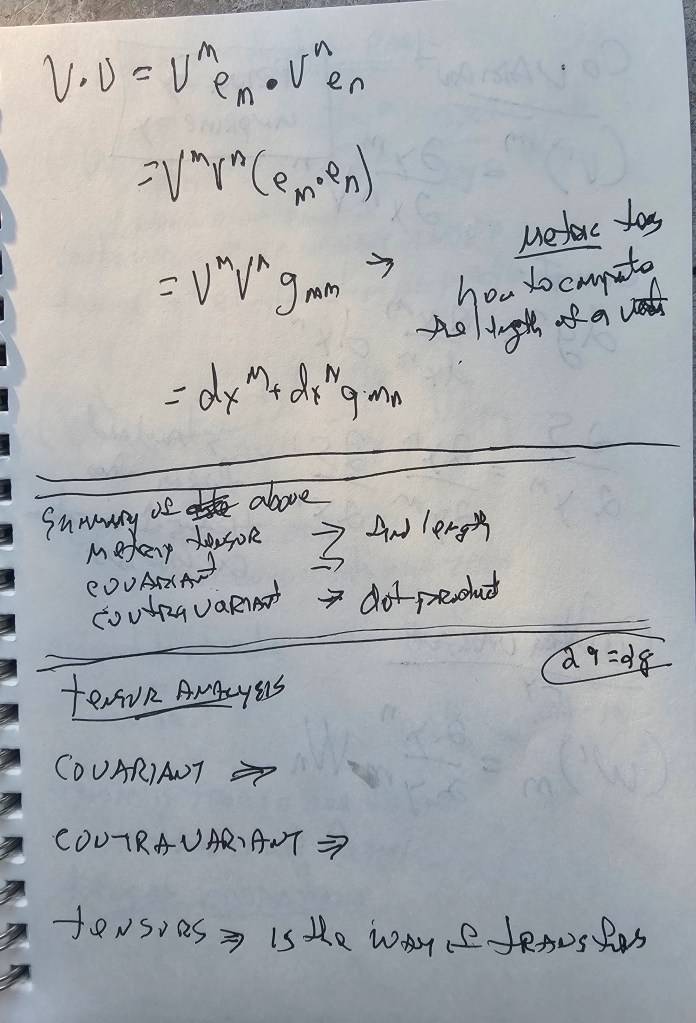 V·V = V^m e_m · V^n e_n
= V^m V^n (e_m · e_n)
= V^m V^n g_mn →
Metric
how to compute
the length of a
= dx^m + dx^n g_mn
Summary of above
Metric tensor ⇒ find length
COVARIANT ⇒
CONTRAVARIANT ⇒ dot product
TENSOR ANALYSIS
COVARIANT ⇒
CONTRAVARIANT ⇒
TENSORS ⇒ is the way